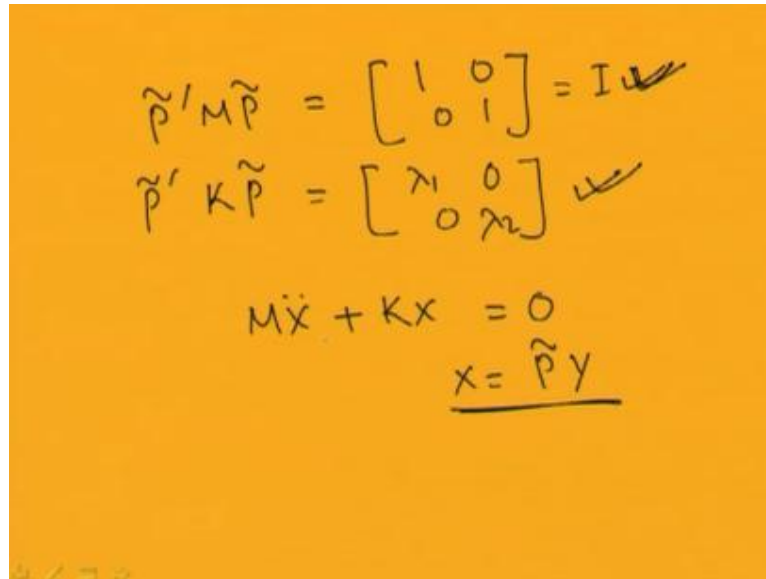 P̃' M P̃ = [ 1 0 0 1 ] = I
P̃' K P̃ = [ λ1 0 0 λ2 ]
MẌ + KX = 0
X = P̃ Y